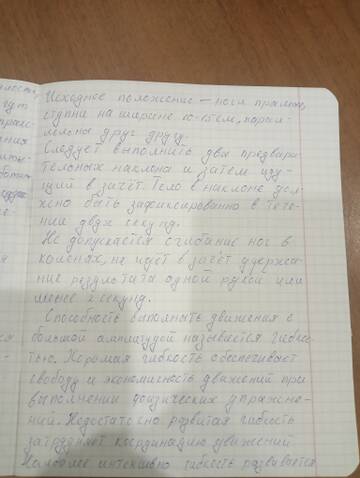 Исходное положение – ноги прямые,
ступни на ширине 10-15см, парал-
лельна друг другу.
Следует выполнить два предвари-
тельных наклона и затем иду-
щий в зачёт. Тело в наклоне дол-
жно быть зафиксированно в тече-
нии двух секунд.
Не допускается сгибание ног в
коленях, не идёт в зачёт удержа-
ние результата одной рукой или
менее 2 секунд.
Способность выполнать движения с
большой амплитудой называется гибкос-
тью. Хорошая гибкость обеспечивает
свободу и экономисность движений при
выполнении физических упражне-
ний. Недостаточно развитая гибкость
затрудняет координацию движений
Наиболее интенсивно гибкость развивается